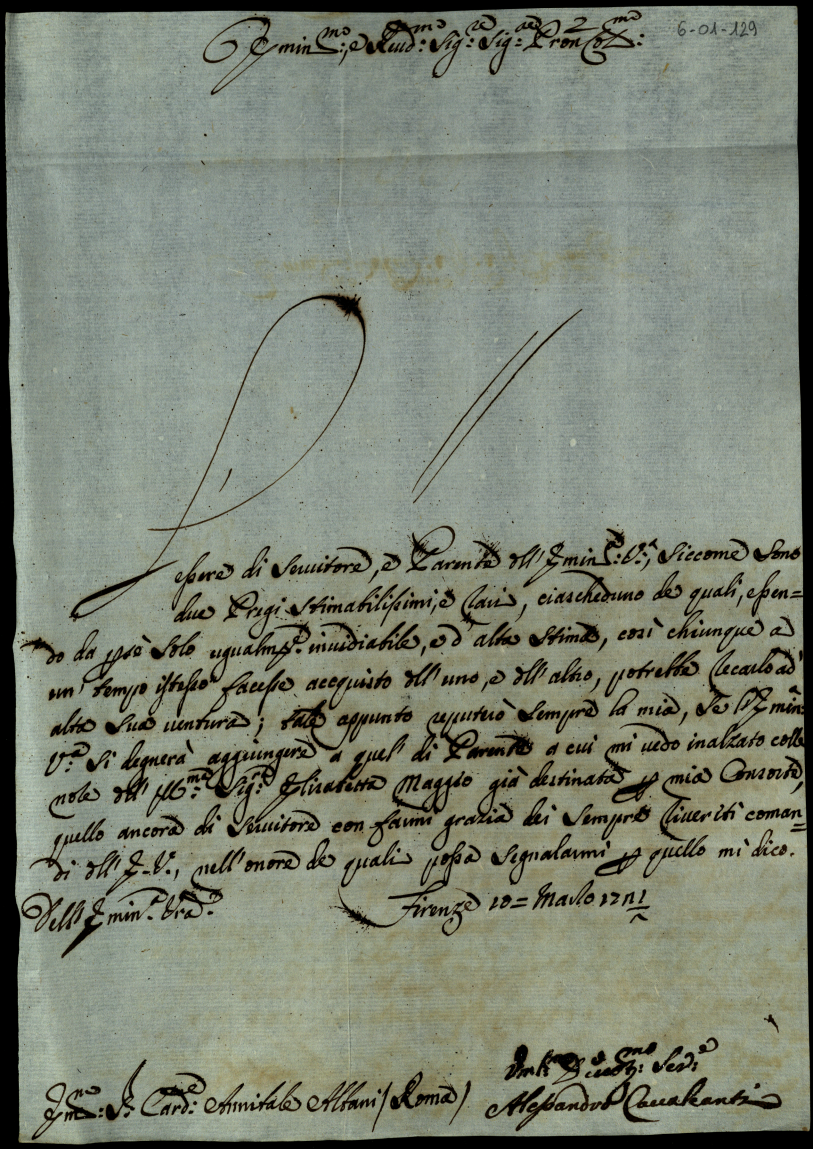 6-01-129
Emin:mo, e Revd:mo Sig:re Sig:re Pron Col:mo
L'essere di Servitore, e Parente dell'Emin:a V:a, siccome sono
due Pregi stimabilissimi, e rari, ciascheduno de quali, essen=
do da per sè solo ugualm:te invidiabile, e d'alta stima, così chiunque ad
un' tempo istesso facesse acquisto dell'uno, e dell'altro, potrebbe recarlo ad
alta sua ventura; tale appunto reputerò sempre la mia, se l'Emin:a
V:ra si degnerà aggiungere a quel' di Parente a cui mi vedo inalzato colle
dell' Ill:ma Sig:ra Elisabetta Maggio già destinata per mia Consorte,
quello ancora di Servitore con farmi grazia dei sempre riveriti coman=
di dell'E. V., nell'onore de quali possa segnalarmi per quello mi dico.
Dell'Emin:a Vra: Firenze 10= Marzo
Em:mo S:r Card:e Annibale Albani (Roma)
Um:mo Ser:e
Alessandro Cavalcanti